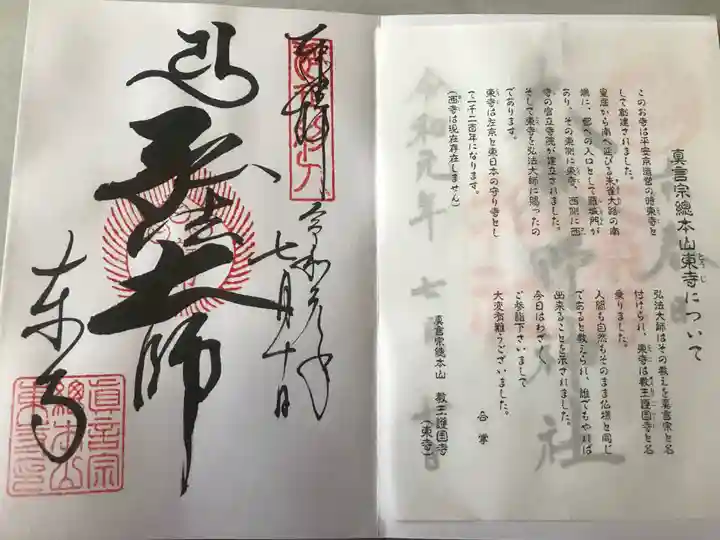 真言宗總本山東寺について
とうじ
このお寺は平安京造営の時東寺と
して創建されました。
皇居から南へ延びる朱雀大路の南
端に、都への入口として羅城門が
あり、その東側に東寺、西側に西
寺の官立寺院が建立されました。
そして東寺を弘法大師に賜ったの
であります。
東寺は左京と東日本の守り寺とし
て一千二百年になります。
(西寺は現在存在しません)
弘法大師はその教えを真言宗と名
付けられ、東寺は教王護国寺と名
乗りました。
人間も自然もそのまま仏様と同じ
であると教えられ、誰でもやれば
出来ることを示されました。
今日はわざく
ご参詣下さいまして
大変有難うございました。
合掌
真言宗總本山 教王護国寺
(東寺)
奉拝
令和元年
七月十日
弘法大師
東寺
真言宗
總本山
東寺印
令和元年七月十日